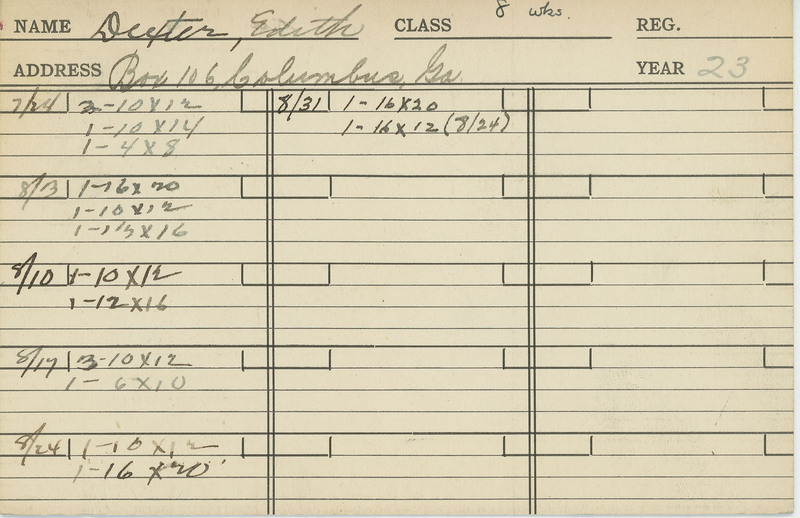 8 wks.
NAME Dexter, Edith CLASS REG.
ADDRESS Box 106, Columbus, Ga. YEAR 23
7/24 3-10x12
1-10x14
1-4x8
8/3 1-16x20
1-10x12
1-13x16
8/10 1-10x12
1-12x16
8/17 3-10x12
1-6x10
8/24 1-10x12
1-16x20
8/31 1-16x20
1-16x12 (8/24)